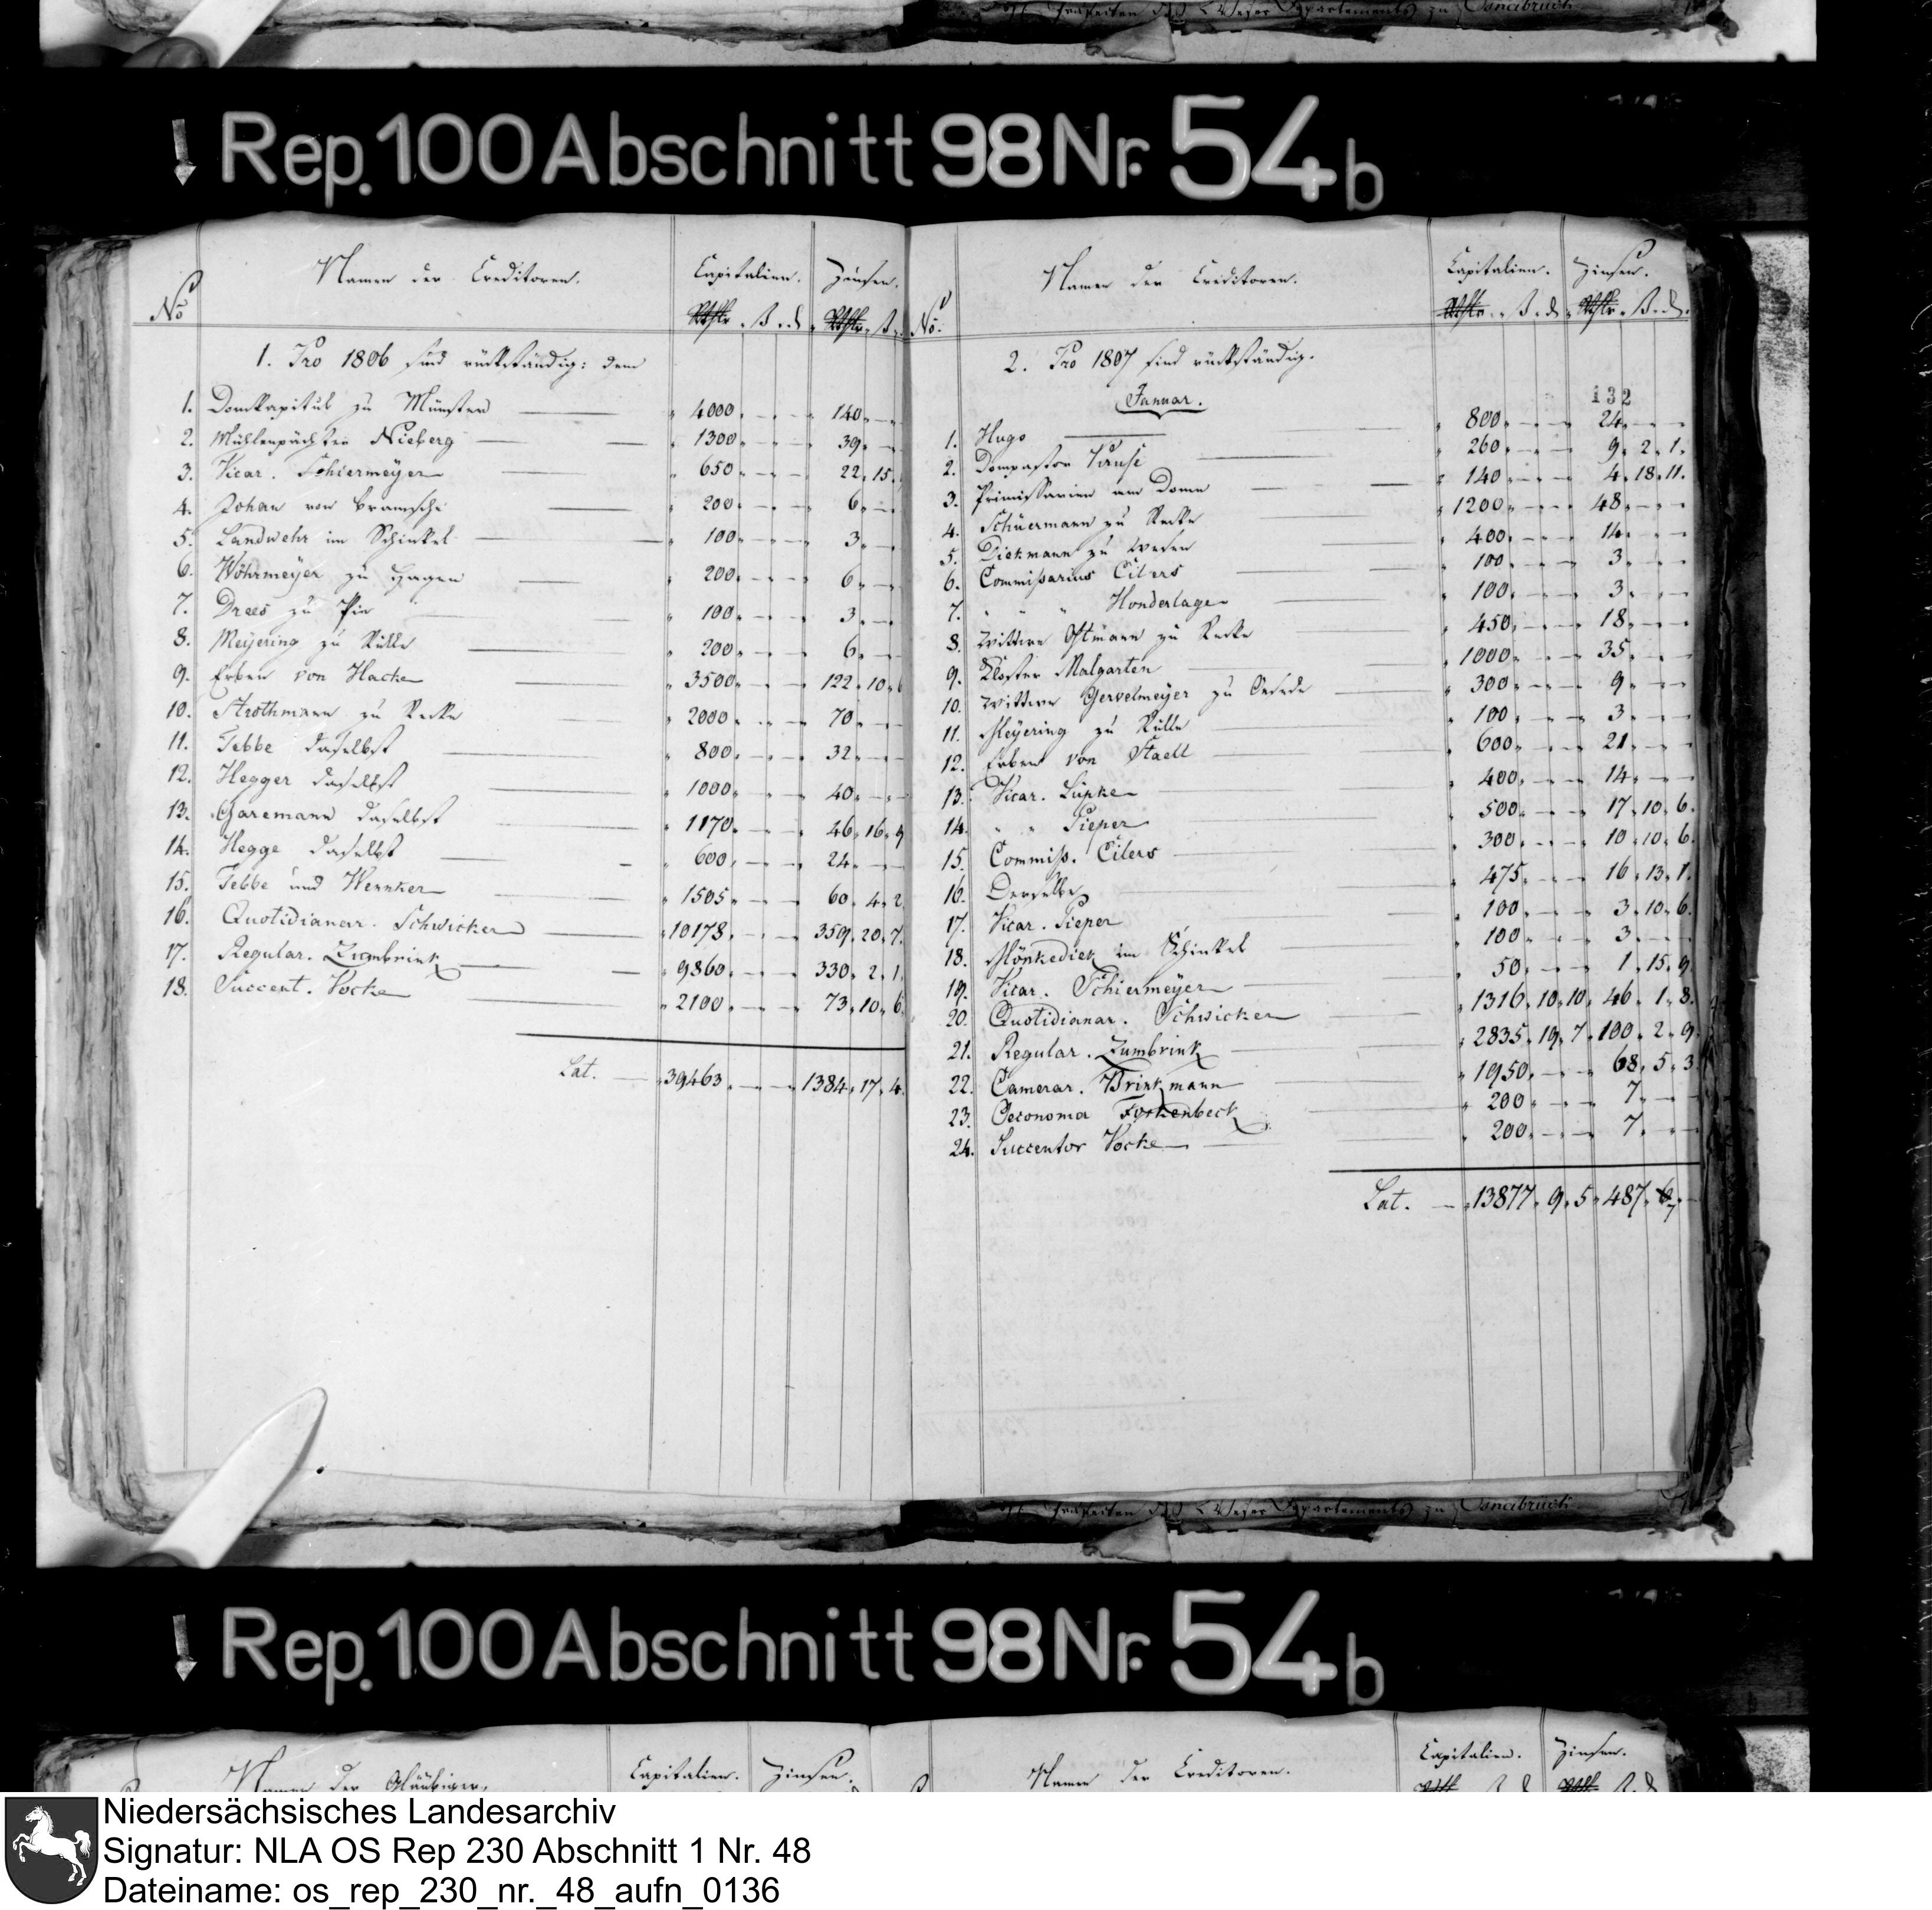 Präfecten des Weser Departements zu Osnabrück
Rep. 100 Abschnitt 98 Nr. 54b
No Namen der Creditoren. Capitalien. Zinsen.
Rthlr. ß. d. Rthlr. ß.
1. Pro 1806 sind rückständig: dem
1. Domkapitul zu Münster 4000 140
2. Mühlenpächter Nieberg 1300 39
3. Vicar. Schiermeyer 650 22. 15.
4. Johan von Bramsche 200 6
5. Landwehr im Schinkel 100 3
6. Wöhrmeyer zu Hagen 200 6
7. Drees zu Pie 100 3
8. Meyering zu Rülle 200 6
9. Erben von Hacke 3500 122. 10. 6
10. Strothmann zu Recke 2000 70
11. Tebbe daselbst 800 32
12. Hegger daselbst 1000 40
13. Garemann daselbst 1170 46. 16. 9
14. Hegge daselbst 600 24
15. Tebbe und Wennker 1505 60. 4. 2
16. Quotidianar. Schwicker 10178 359. 20. 7.
17. Regular. Zumbrink 9860 330. 2. 1
18. Succent. Vocke 2100 73. 10. 6
Lat. 39463 1384. 17. 4.
No. Namen der Creditoren. Capitalien. Zinsen.
Rthlr. ß. d. Rthlr. ß. d.
2. Pro 1807 sind rückständig.
132
Januar.
1. Hugo 800 24
2. Dompastor Kruse 260 9. 2. 1.
3. Primissarien am Dome 140 4. 18. 11.
4. Schürmann zu Recke 1200 48
5. Diekmann zu Wesen 400 14
6. Commissarius Eilers 100 3
7. " " Honderlage 100 3
8. Wittwe Ostmann zu Recke 450 18
9. Kloster Malgarten 1000 35
10. Wittwe Gervelmeyer zu Oesede 300 9
11. Meyering zu Rülle 100 3
12. Erben von Staell 600 21
13. Vicar. Lüpke 400 14
14. " " Pieper 500 17. 10. 6.
15. Commiss. Eilers 300 10. 10. 6.
16. Derselbe 475 16. 13. 1.
17. Vicar. Pieper 100 3. 10. 6.
18. Mönkediek im Schinkel 100 3
19. Vicar. Schiermeyer 50 1. 15. 9
20. Quotidianar. Schwicker 1316. 10. 10. 46. 1. 8.
21. Regular. Zumbrink 2835. 19. 7. 100. 2. 9
22. Camerar. Brinkmann 1950 68. 5. 3
23. Oeconoma Forkenbeck 200 7
24. Succentor Vocke 200 7
Lat. 13877. 9. 5. 487. 7
Präfecten des Weser Departements zu Osnabrück
Rep. 100 Abschnitt 98 Nr. 54b
Namen der Gläubiger. Capitalien. Zinsen. Namen der Creditoren. Capitalien. Zinsen.
Niedersächsisches Landesarchiv
Signatur: NLA OS Rep 230 Abschnitt 1 Nr. 48
Dateiname: os_rep_230_nr._48_aufn_0136